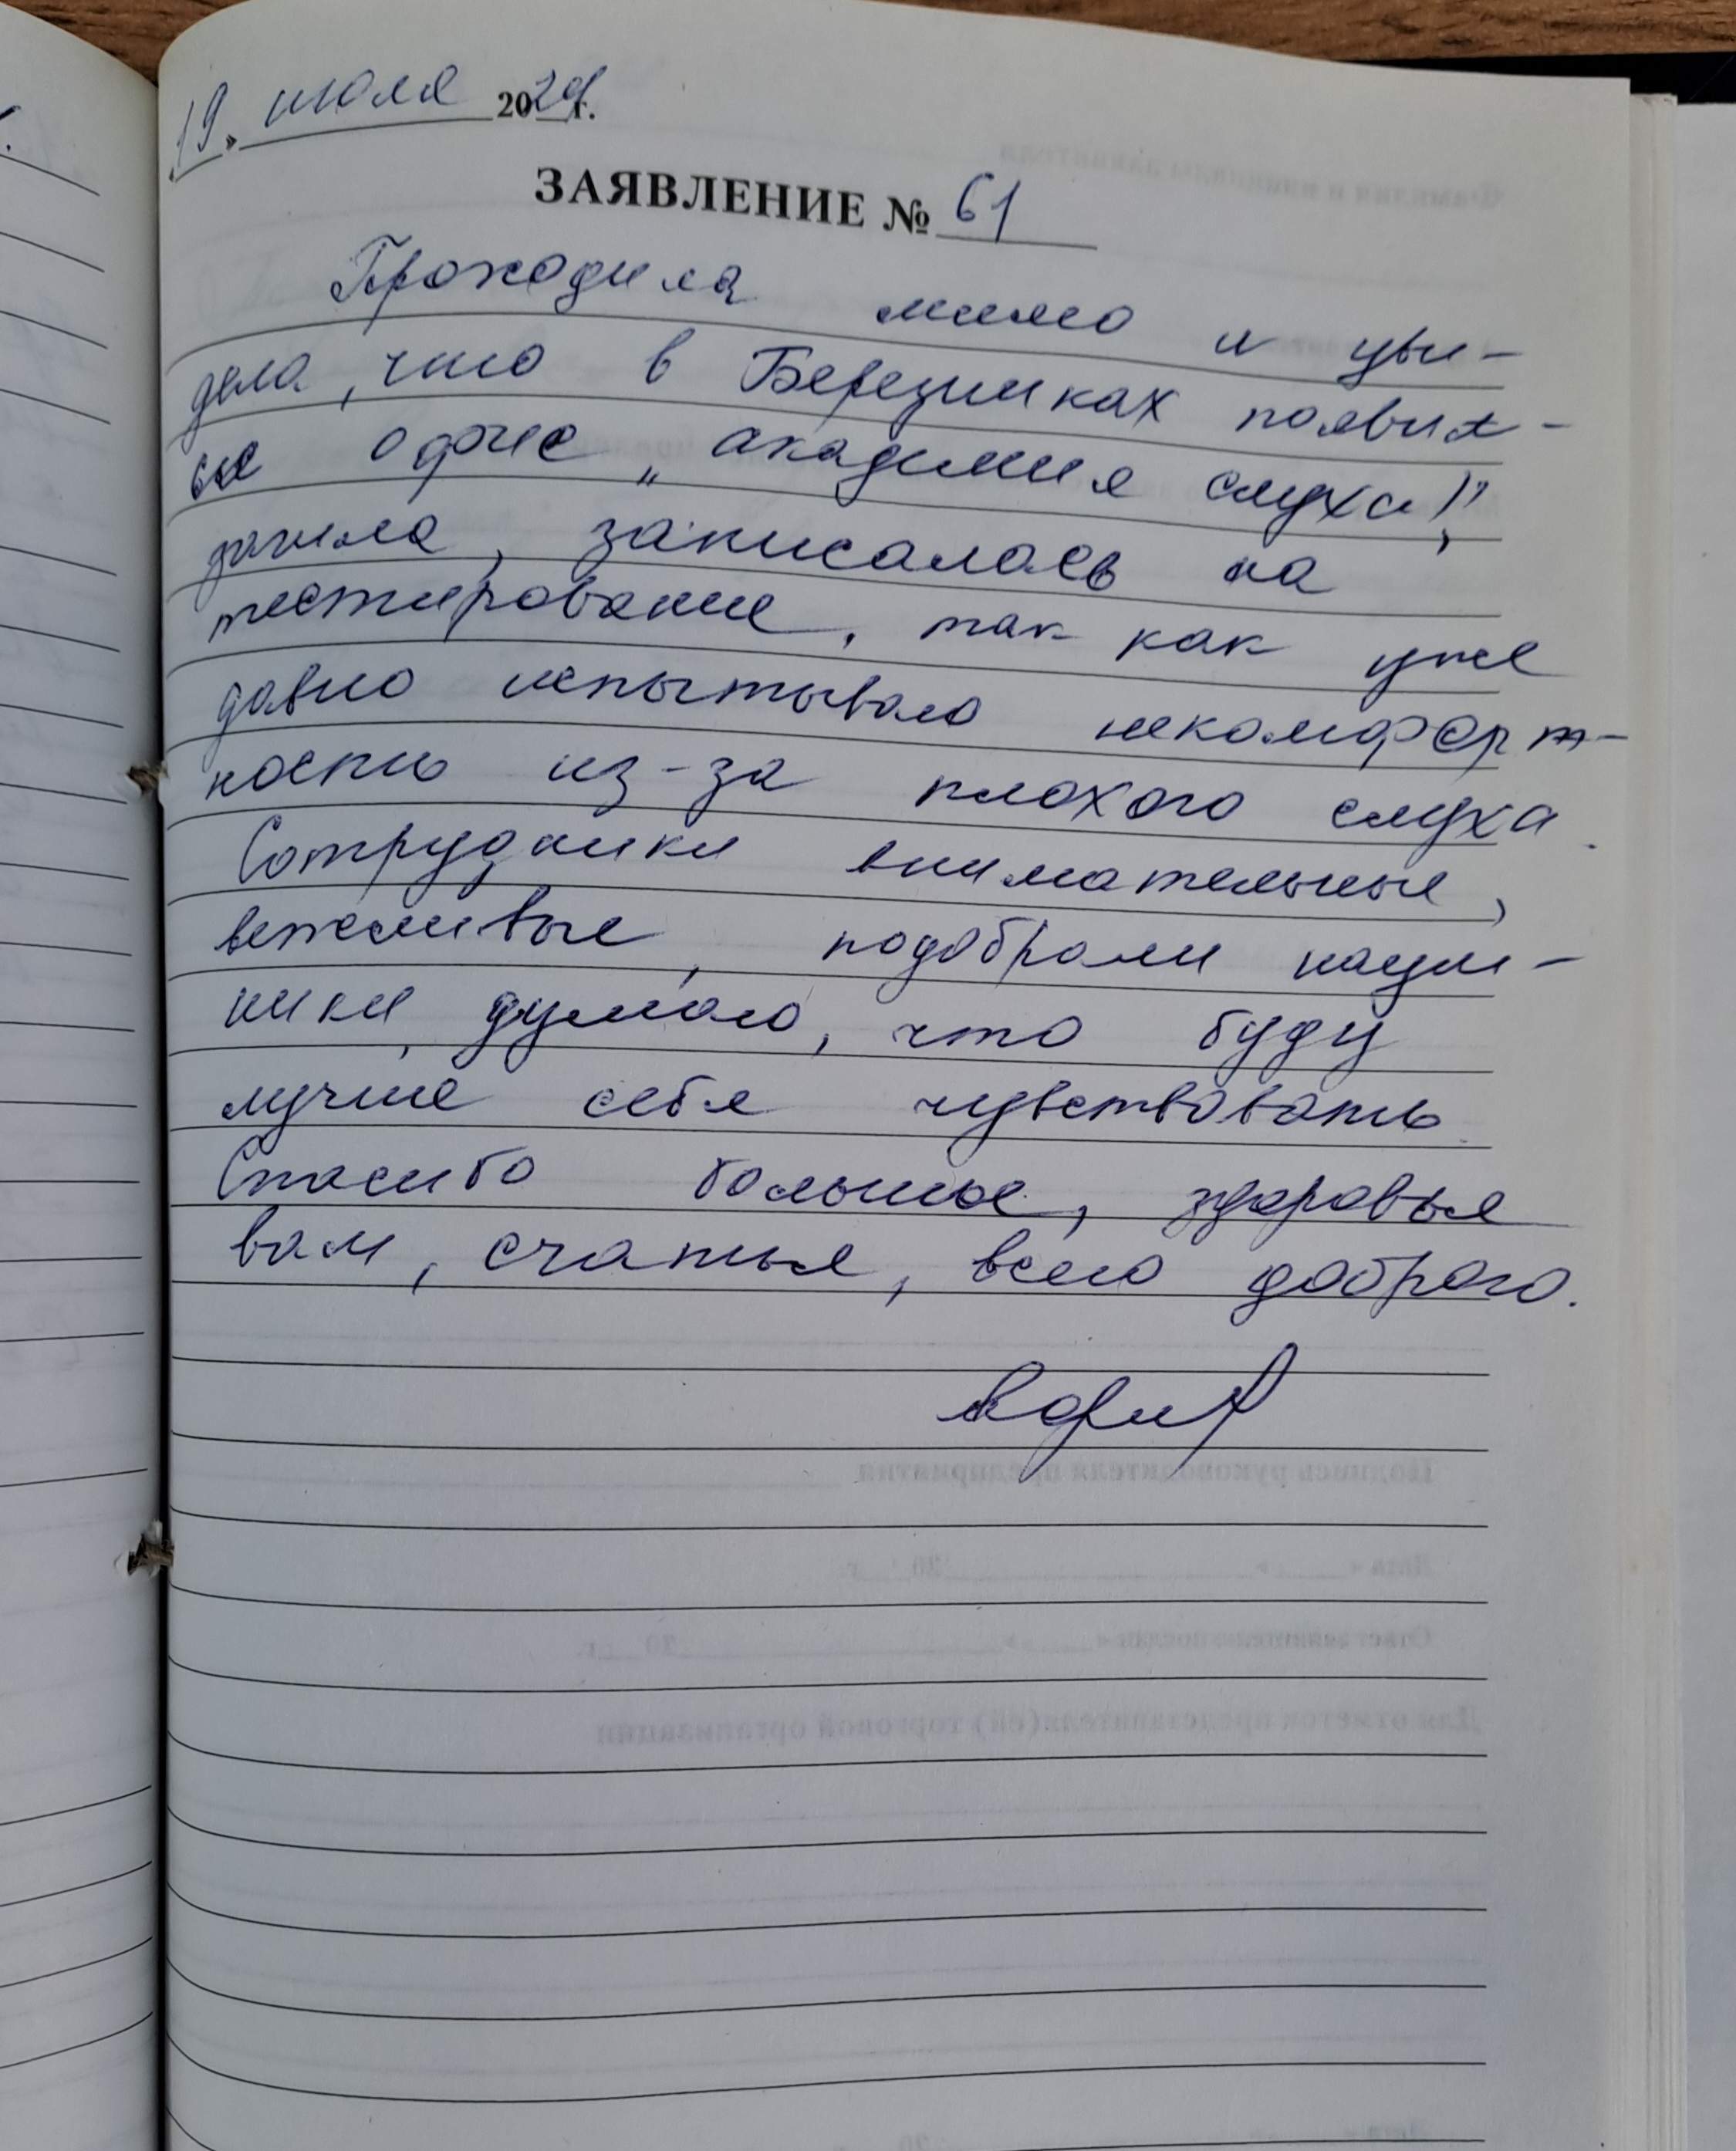 19. июля 2024 г.
ЗАЯВЛЕНИЕ № 61
Проходила мимо и уви-
дела, что в Березниках появил-
ся офис „академия слуха",
зашла, записалась на
тестирование, так как уже
давно испытываю некомфорт-
ность из-за плохого слуха.
Сотрудники внимательные,
вежливые, подобрали науш-
ники, думаю, что буду
лучше себя чувствовать.
Спасибо большое, здоровья
вам, счатья, всего доброго.